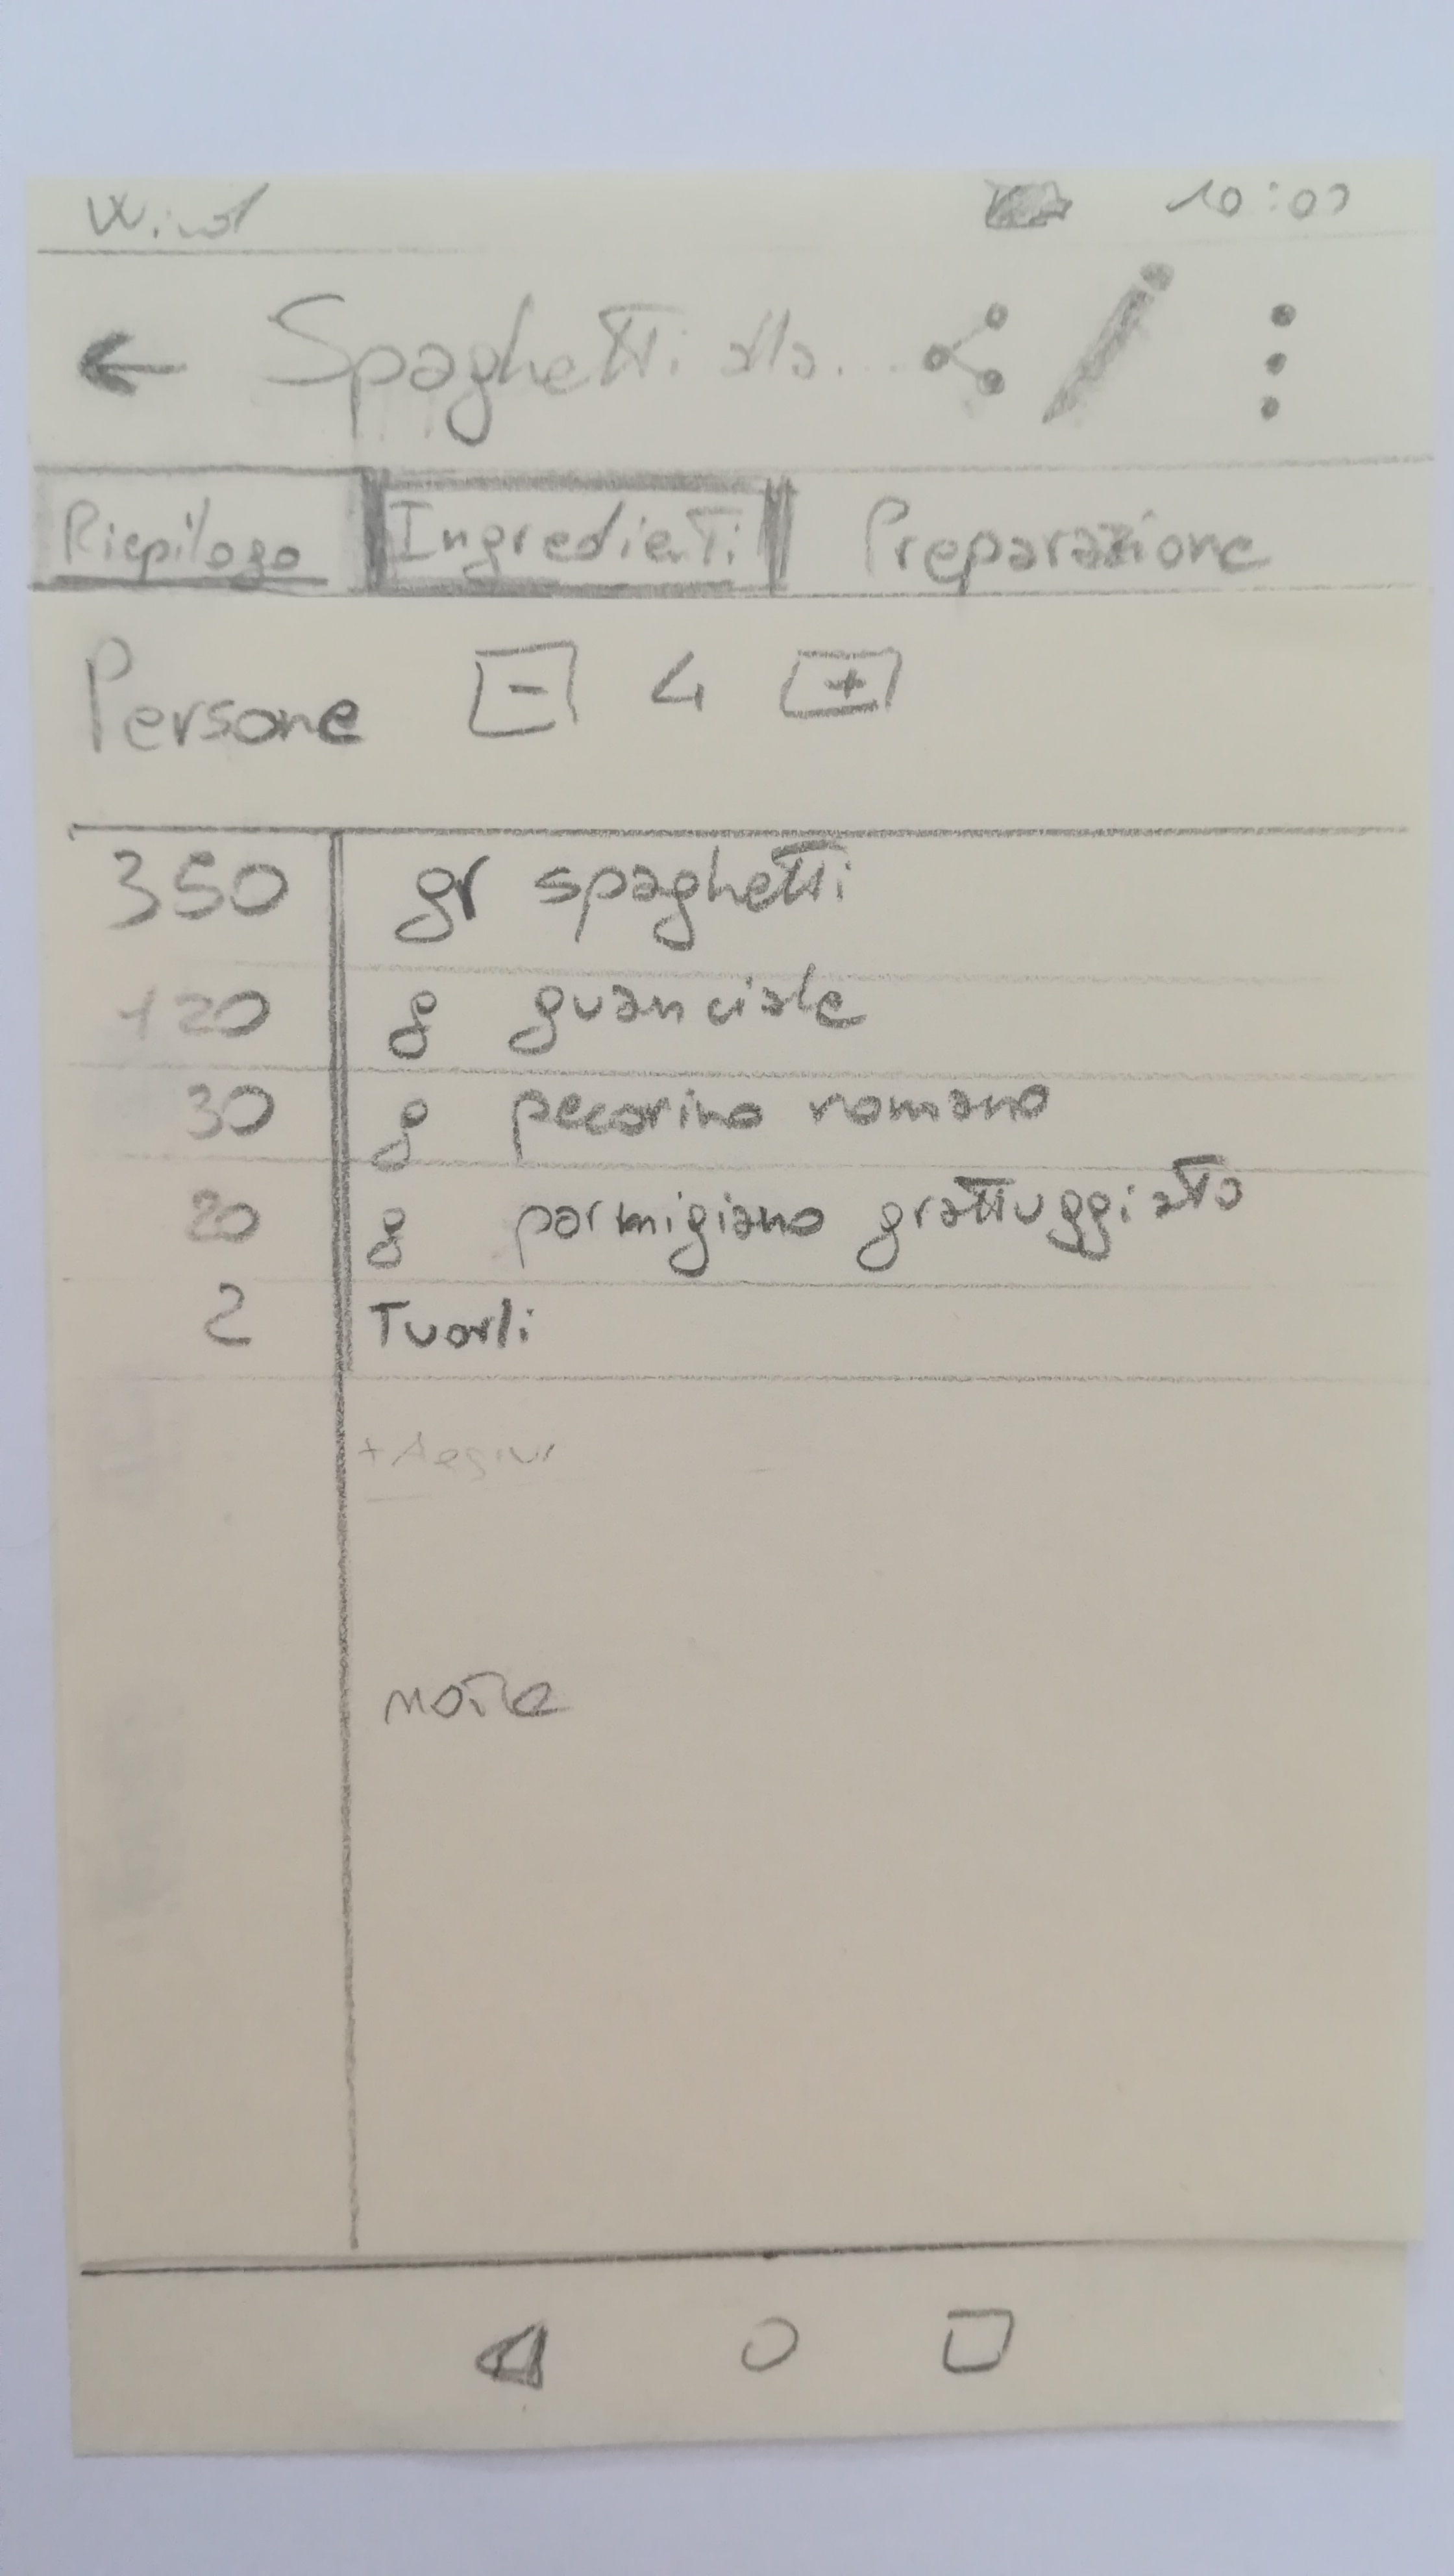 Wind 10:00
← Spaghetti alla...
Riepilogo Ingredienti Preparazione
Persone - 4 +
350 gr spaghetti
120 g guanciale
30 g pecorino romano
20 g parmigiano grattuggiato
2 Tuorli
note